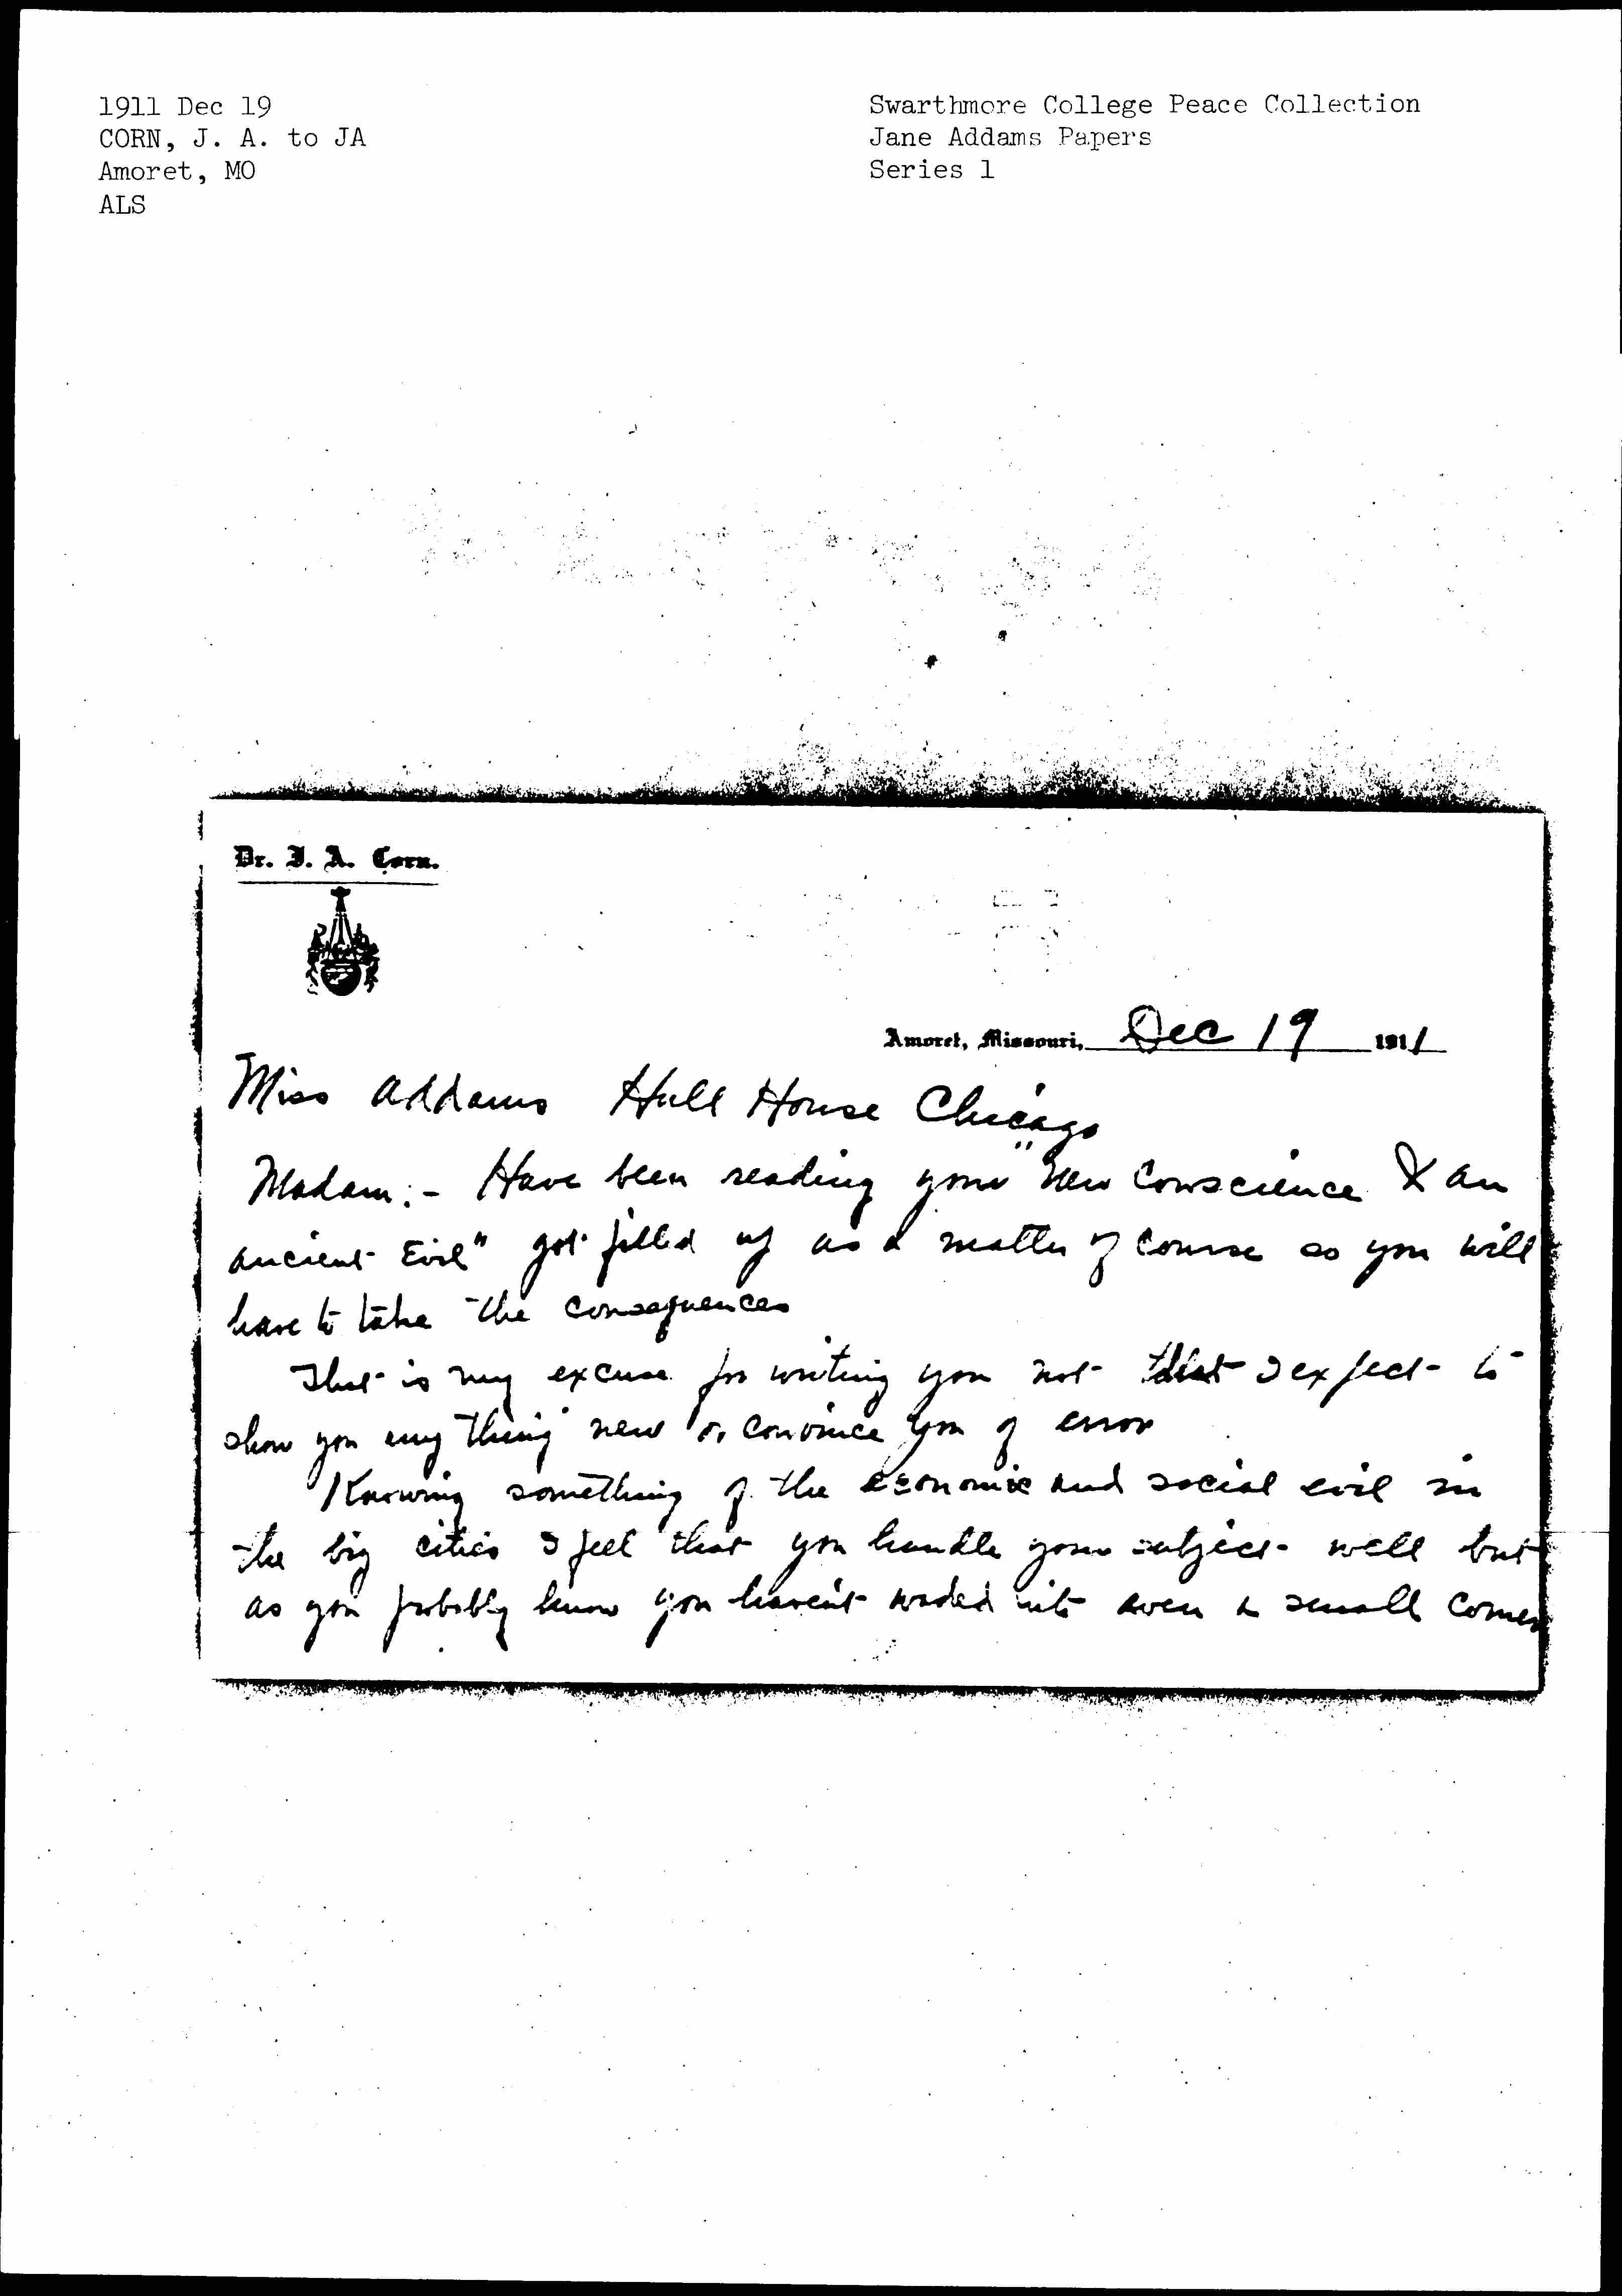 1911 Dec 19
CORN, J. A. to JA
Amoret, MO
ALS
Swarthmore College Peace Collection
Jane Addams Papers
Series 1
Dr. J. A. Corn.
Amoret, Missouri, Dec 19 1911
Miss Addams Hull House Chicago
Madam:- Have been reading your "New Conscience & an
ancient Evil" got filled up as a matter of course so you will
have to take the consequences
That is my excuse for writing you not that I expect to
show you any thing new or convince you of error
Knowing something of the economic and social evil in
the big cities I feel that you handle your subject well but
as you probably know you haven't waded into even a small corner